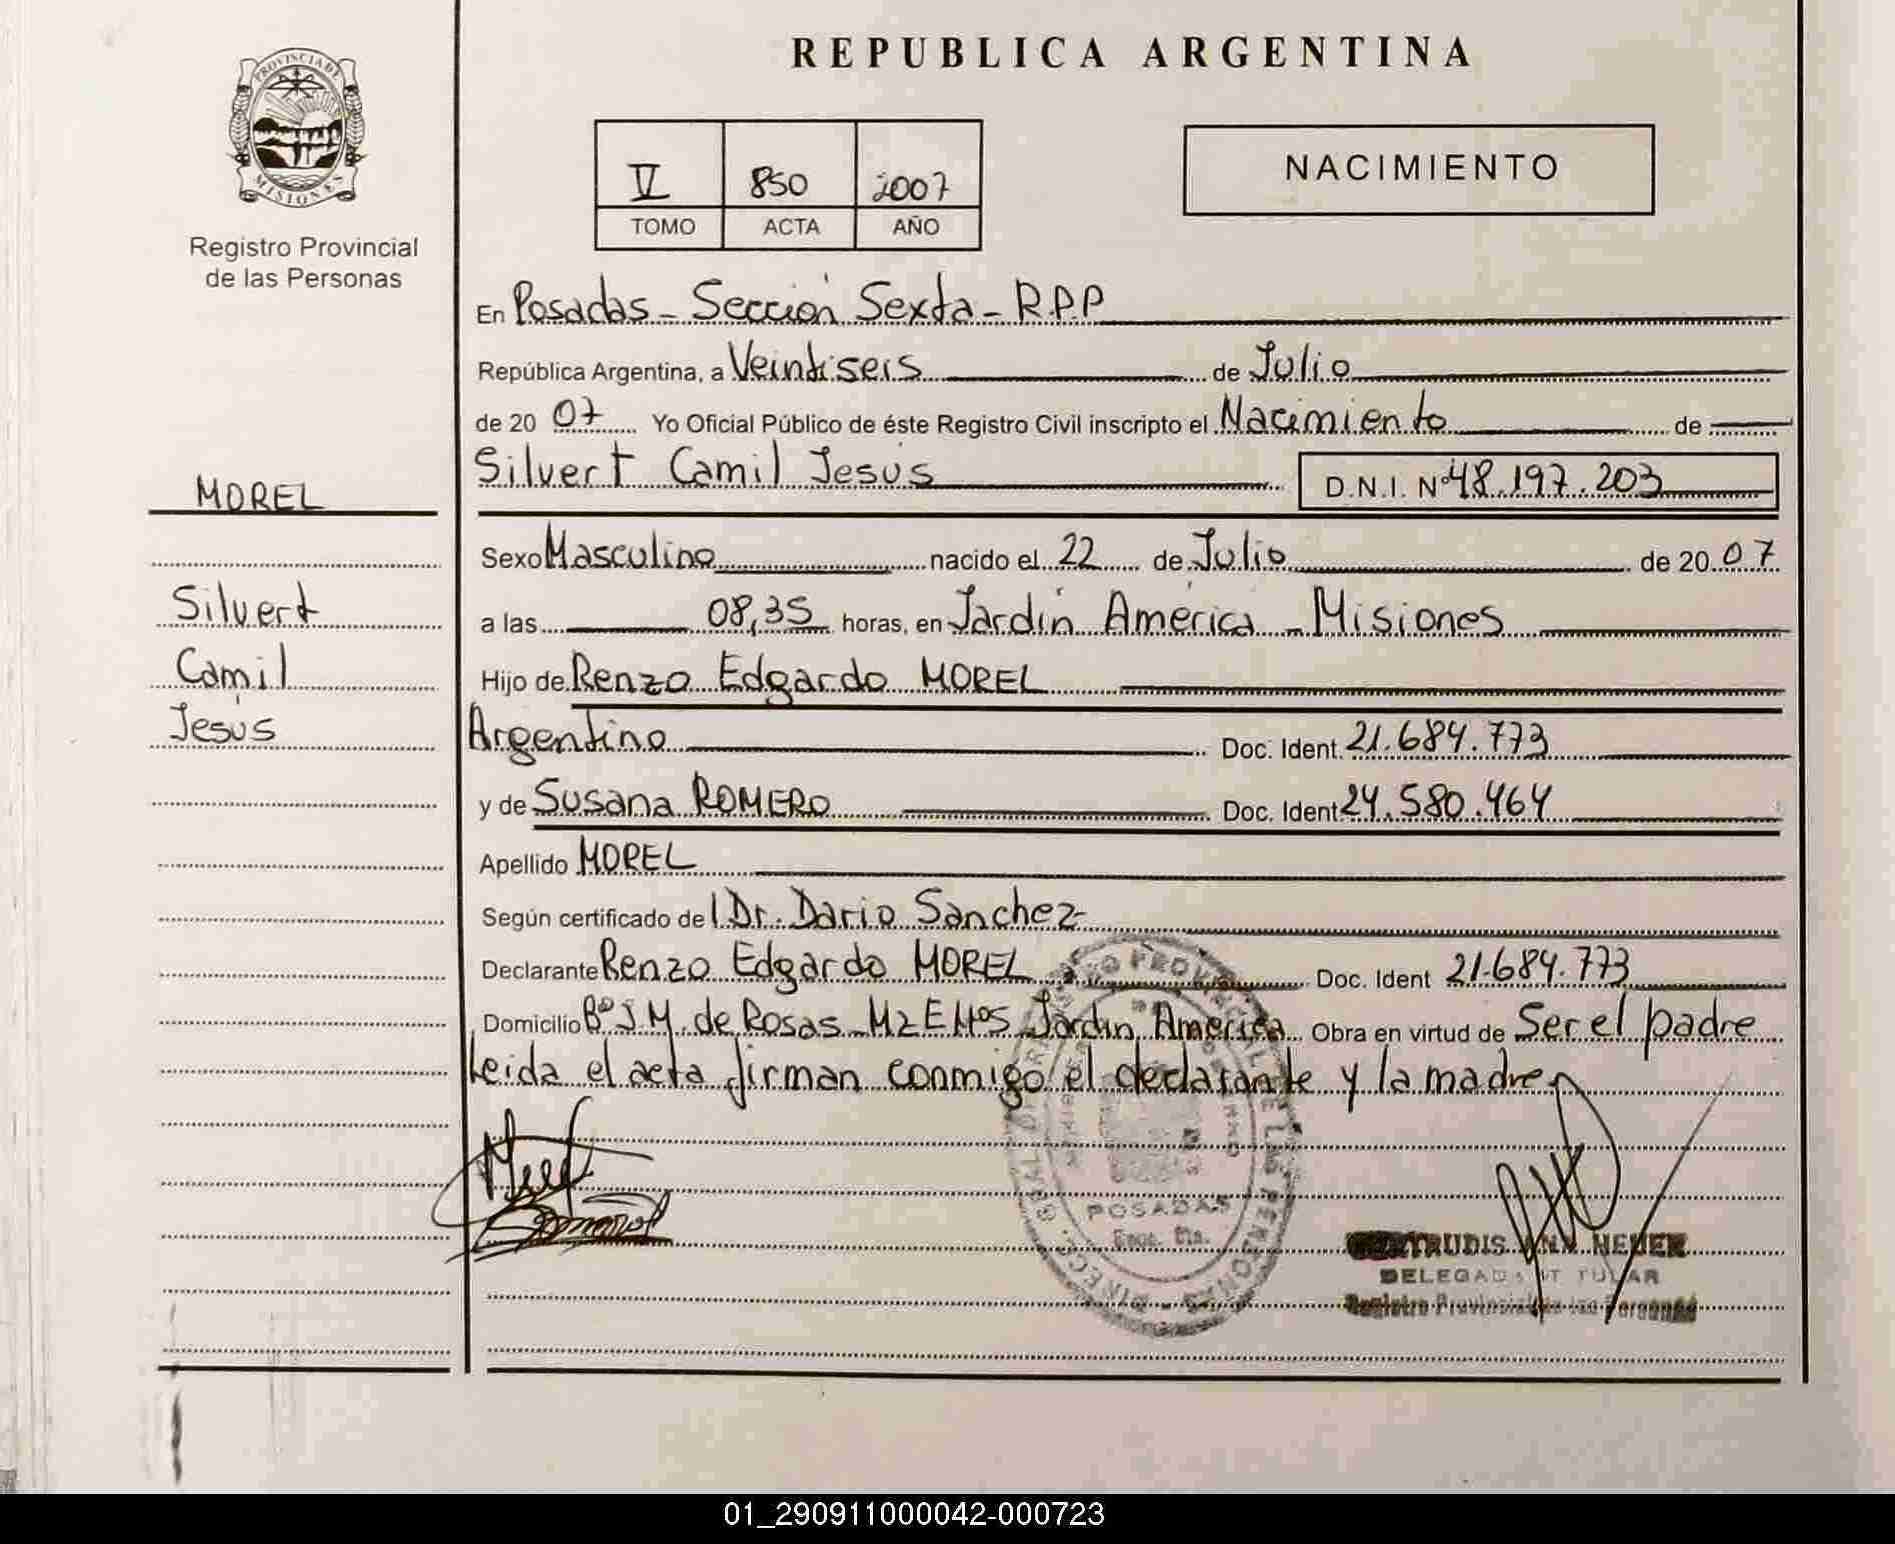 REPUBLICA ARGENTINA
PROVINCIA DE
MISIONES
Registro Provincial
de las Personas
V 850 2007
TOMO ACTA AÑO
NACIMIENTO
En Posadas - Sección Sexta - R.P.P
República Argentina, a Veintiseis de Julio
de 20 07 Yo Oficial Público de éste Registro Civil inscripto el Nacimiento de
Silvert Camil Jesús D.N.I. Nº 48.197.203
MOREL
Silvert
Camil
Jesús
Sexo Masculino nacido el 22 de Julio de 20 07
a las 08,35 horas, en Jardín América - Misiones
Hijo de Renzo Edgardo MOREL
Argentino Doc. Ident. 21.684.773
y de Susana ROMERO Doc. Ident 24.580.464
Apellido MOREL
Según certificado del Dr. Dario Sanchez
Declarante Renzo Edgardo MOREL Doc. Ident 21.684.773
Domicilio Bº J.M. de Rosas - Mz E Jardín América Obra en virtud de Ser el padre
Leida el acta firman conmigo el declarante y la madre
POSADAS
DELEGADA TITULAR
Registro Provincial de las Personas
01_290911000042-000723